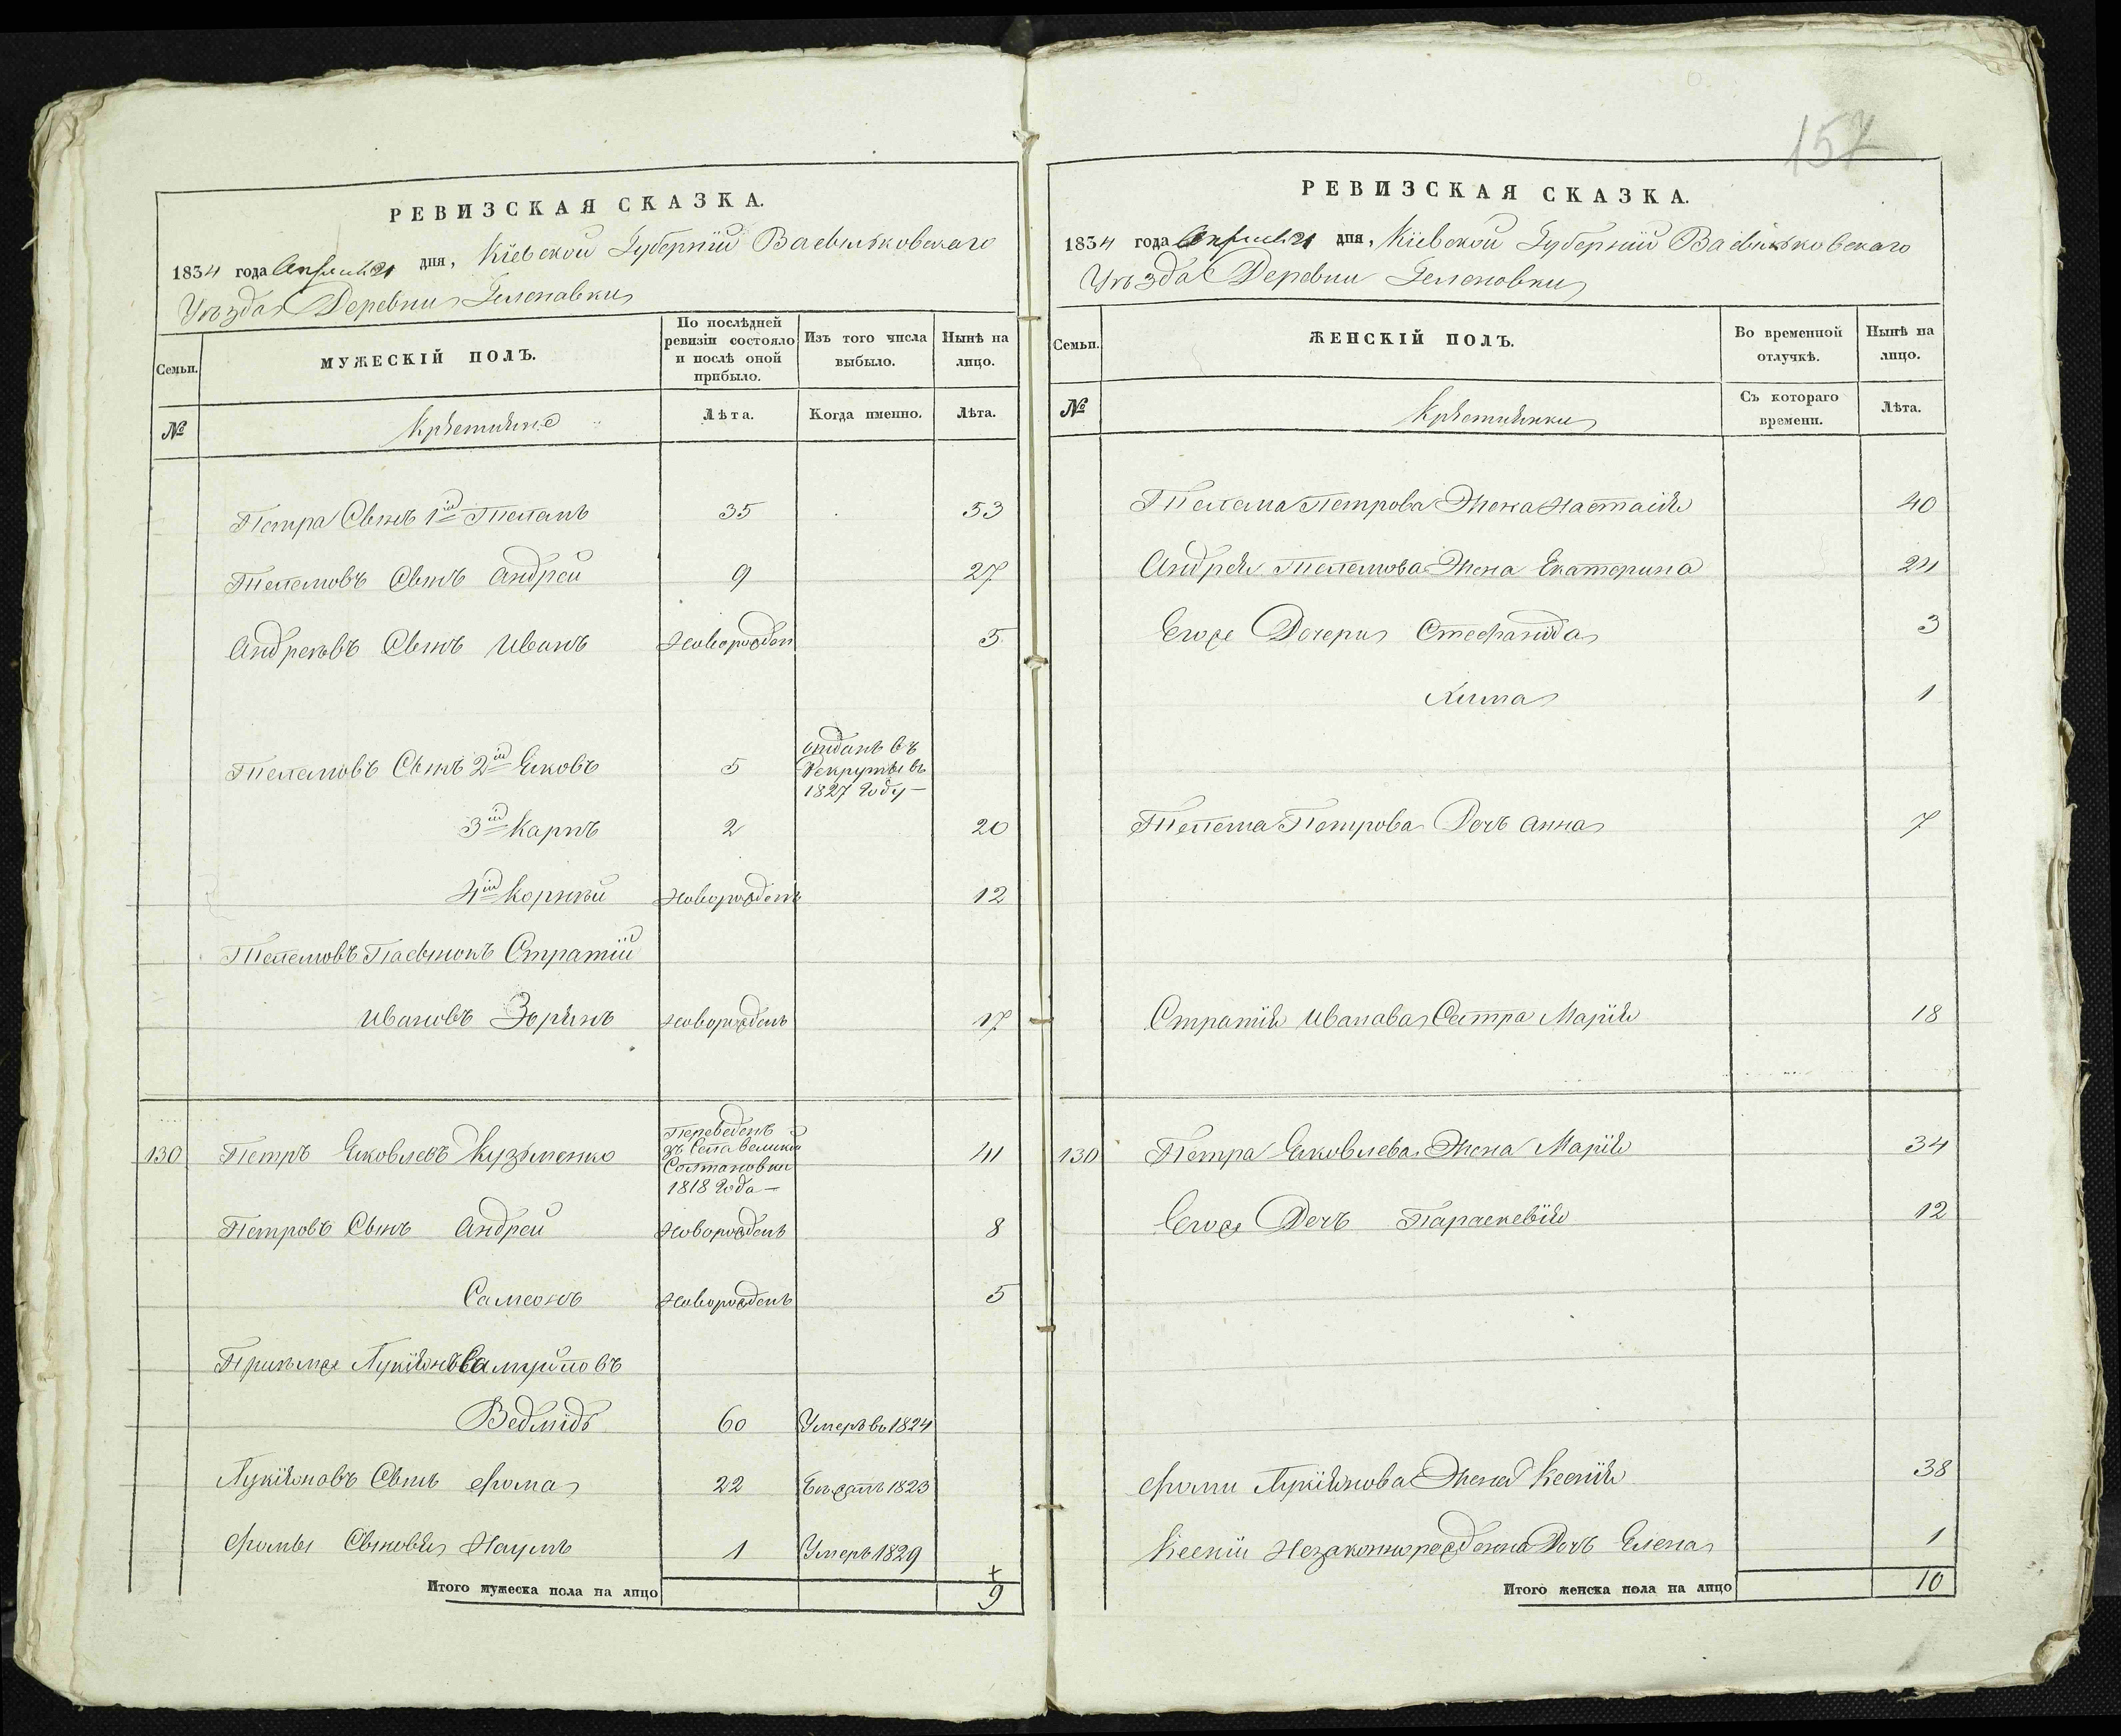 157
РЕВИЗСКАЯ СКАЗКА.
1834 года Апреля 21 дня, Кіевской Губерніи Васильковскаго
Уѣзда Деревни Геленавки
Семьи.
МУЖЕСКІЙ ПОЛЪ.
По послѣдней ревизіи состояло и послѣ оной прибыло.
Изъ того числа выбыло.
Нынѣ на лицо.
№
Крѣстьяне
Лѣта.
Когда именно.
Лѣта.
Петра Сынъ 1й 35 53
Сынъ Андрей 9 27
Андреевъ Сынъ Иванъ Новорожден 5
Сынъ 2й Яковъ 5 отданъ въ Рекруты въ 1827 Году
3й Карпъ 2 20
4й Корнѣй Новорожденъ 12
Пасынокъ Стратій
Ивановъ Новорожденъ 17
130 Петръ Яковлевъ Кузьменко Переведенъ зъ Села Великой Солтановки 1818 Года 41
Петровъ Сынъ Андрей Новорожденъ 8
Самсонъ Новорожденъ 5
Лукіяновъ Самуиловъ
Ведмідь 60 Умеръ въ 1824
Лукіяновъ Сынъ Фома 22 Бѣжалъ 1823
Фомы Сыновья Наумъ 1 Умеръ 1829
Итого мужеска пола на лицо 9
РЕВИЗСКАЯ СКАЗКА.
1834 года Апреля 21 дня, Кіевской Губерніи Васильковскаго
Уѣзда Деревни Геленовки
Семьи.
ЖЕНСКІЙ ПОЛЪ.
Во временной отлучкѣ.
Нынѣ на лицо.
№
Крѣстьянки
Съ котораго времени.
Лѣта.
Петрова Жена Настасія 40
Андрея Жена Екатерина 24
Егоже Дочери Стефанида 3
Хима 1
Петрова Дочъ Анна 7
Стратія Иванава Сестра Марія 18
130 Петра Яковлева Жена Марія 34
Егоже Дочъ Параскевія 12
Фомы Лукіянова Жена Ксенія 38
Ксеніи Незаконнорожденна Дочъ Елена 1
Итого женска пола на лицо 10